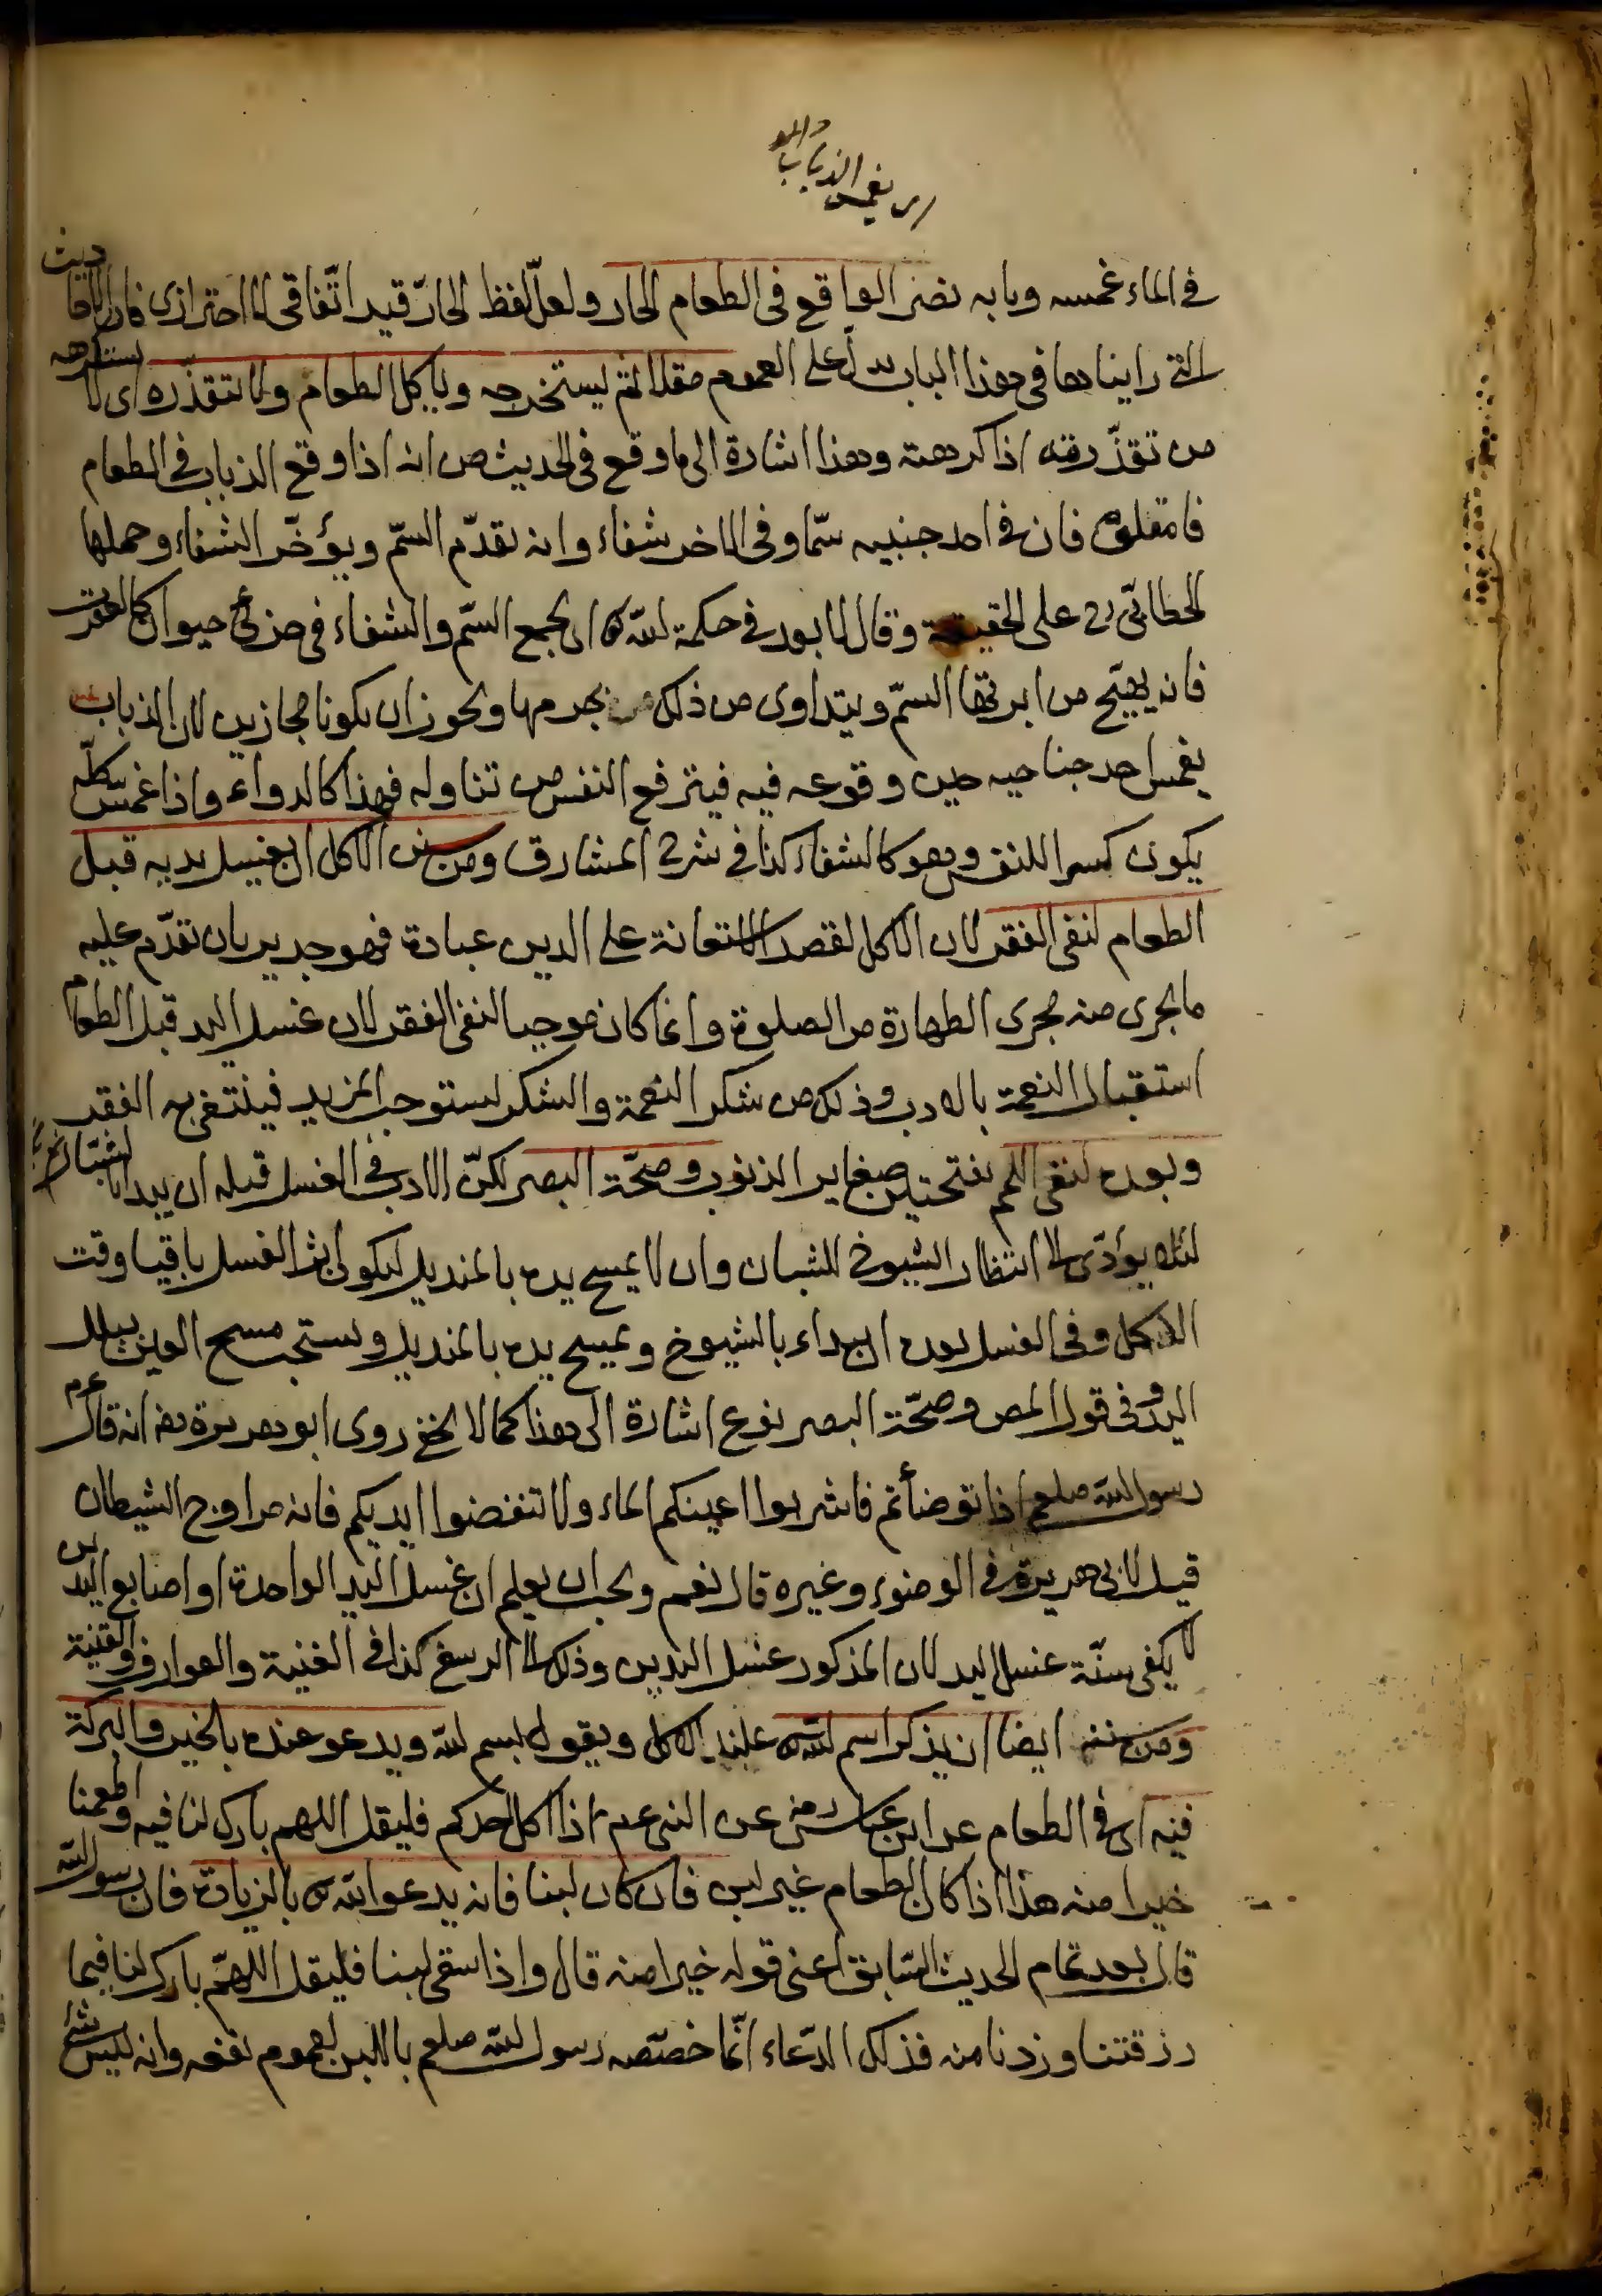 اى يغمس الذباب
فى الماء غمسه وبابه نصر الواقع فى الطعام الحار ولعلّ لفظ الحارّ قيد اتّفاقى لا احترازى فان الاحاديث
التى رايناها فى هذا الباب يدلّ على العموم مقلا ثم ليستخرجه وياكل الطعام ولا يتقذّره اى لا يستكرهه
من تقذّرته اذا كرهته وهذا اشارة الى ما وقع فى الحديث من انه اذا وقع الذباب فى الطعام
فامقلوه فان فى احد جنبيه سمّا وفى الاخر شفاء وانه يقدّم السّم ويؤخّر الشفاء وحملها
الخطابّى رح على الحقيقة وقال لا بعد فى حكمة الله تع ان يجمع السّم والشفاء فى جزئى حيوان كالعقرب
فانه يهيّج من ابرتها السّم ويتداوى من ذلك بجرمها ويجوز ان يكونا مجازين لان الذباب
يغمس احد جناحيه حين وقوعه فيه فيترفع النفس من تناوله فهذا كالداء واذا غمس كلّه
يكون كسرا للنفس وهو كالشفاء كذا فى شرح المشارق ومن سنن الاكل ان يغسل يديه قبل
الطعام لنفى الفقر لان الاكل لقصد الاستعانة على الدين عبادة فهو جدير بان تقدّم عليه
ما يجرى منه مجرى الطهارة من الصلوة وانما كان موجبا لنفى الفقر لان غسل اليد قبل الطعام
استقبال النعمة بالادب وذلك من شكر النعمة والشكر يستوجب المزيد فينتفى به الفقر
وبعده لنفى اللمم بفتحتين صغاير الذنوب وصحّة البصر لكنّ الادب فى الغسل قبله ان يبدا بالشبّان
لئلا يؤدّى الى انتظار الشيوخ للشبان وان لا يمسح يده بالمنديل ليكون اثر الغسل باقيا وقت
الاكل وفى الغسل بعده ان يبداء بالشيوخ ويمسح يده بالمنديل ويستحب مسح العين ببلل
اليد وفى قول المص وصحّة البصر نوع اشارة الى هذا كما لا يخفى روى ابو هريرة رضه انه قال
رسول الله صلعم اذا توضأتم فاشربوا اعينكم الماء ولا تنفضوا ايديكم فانه مراوح الشيطان
قيل لابى هريرة فى الوضوء وغيره قال نعم ويجب ان يعلم ان غسل اليد الواحدة او اصابع اليدين
لا يكفى سنّة غسل اليد لان المذكور غسل اليدين وذلك الى الرسغ كذا فى الغنية والعوارف والقنية
ومن سننه ايضا ان يذكر اسم الله تع عند الاكل ويقول بسم الله ويدعو عنده بالخير والبركة
فيه اى فى الطعام عن ابن عباس رضى عن النبى عم اذا اكل احدكم فليقل اللهم بارك لنا فيه واطعمنا
خيرا منه هذا اذا كان الطعام غير لبن فان كان لبنا فانه يدعو الله تع بالزيادة فان رسول الله
قال بعد تمام الحديث السّابق اعنى قوله خيرا منه قال واذا سقى لبنا فليقل اللهمّ بارك لنا فيما
رزقتنا وزدنا منه فذلك الدّعاء انّما خصّصه رسول الله صلعم باللبن لعموم نفعه وانه ليس شئ